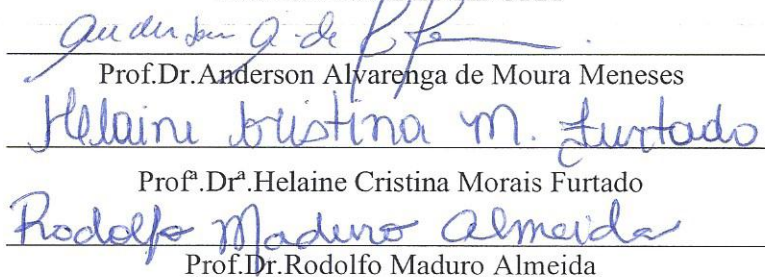 Anderson A. de
Prof.Dr.Anderson Alvarenga de Moura Meneses
Helaine Cristina M. Furtado
Profª.Drª.Helaine Cristina Morais Furtado
Rodolfo Maduro Almeida
Prof.Dr.Rodolfo Maduro Almeida